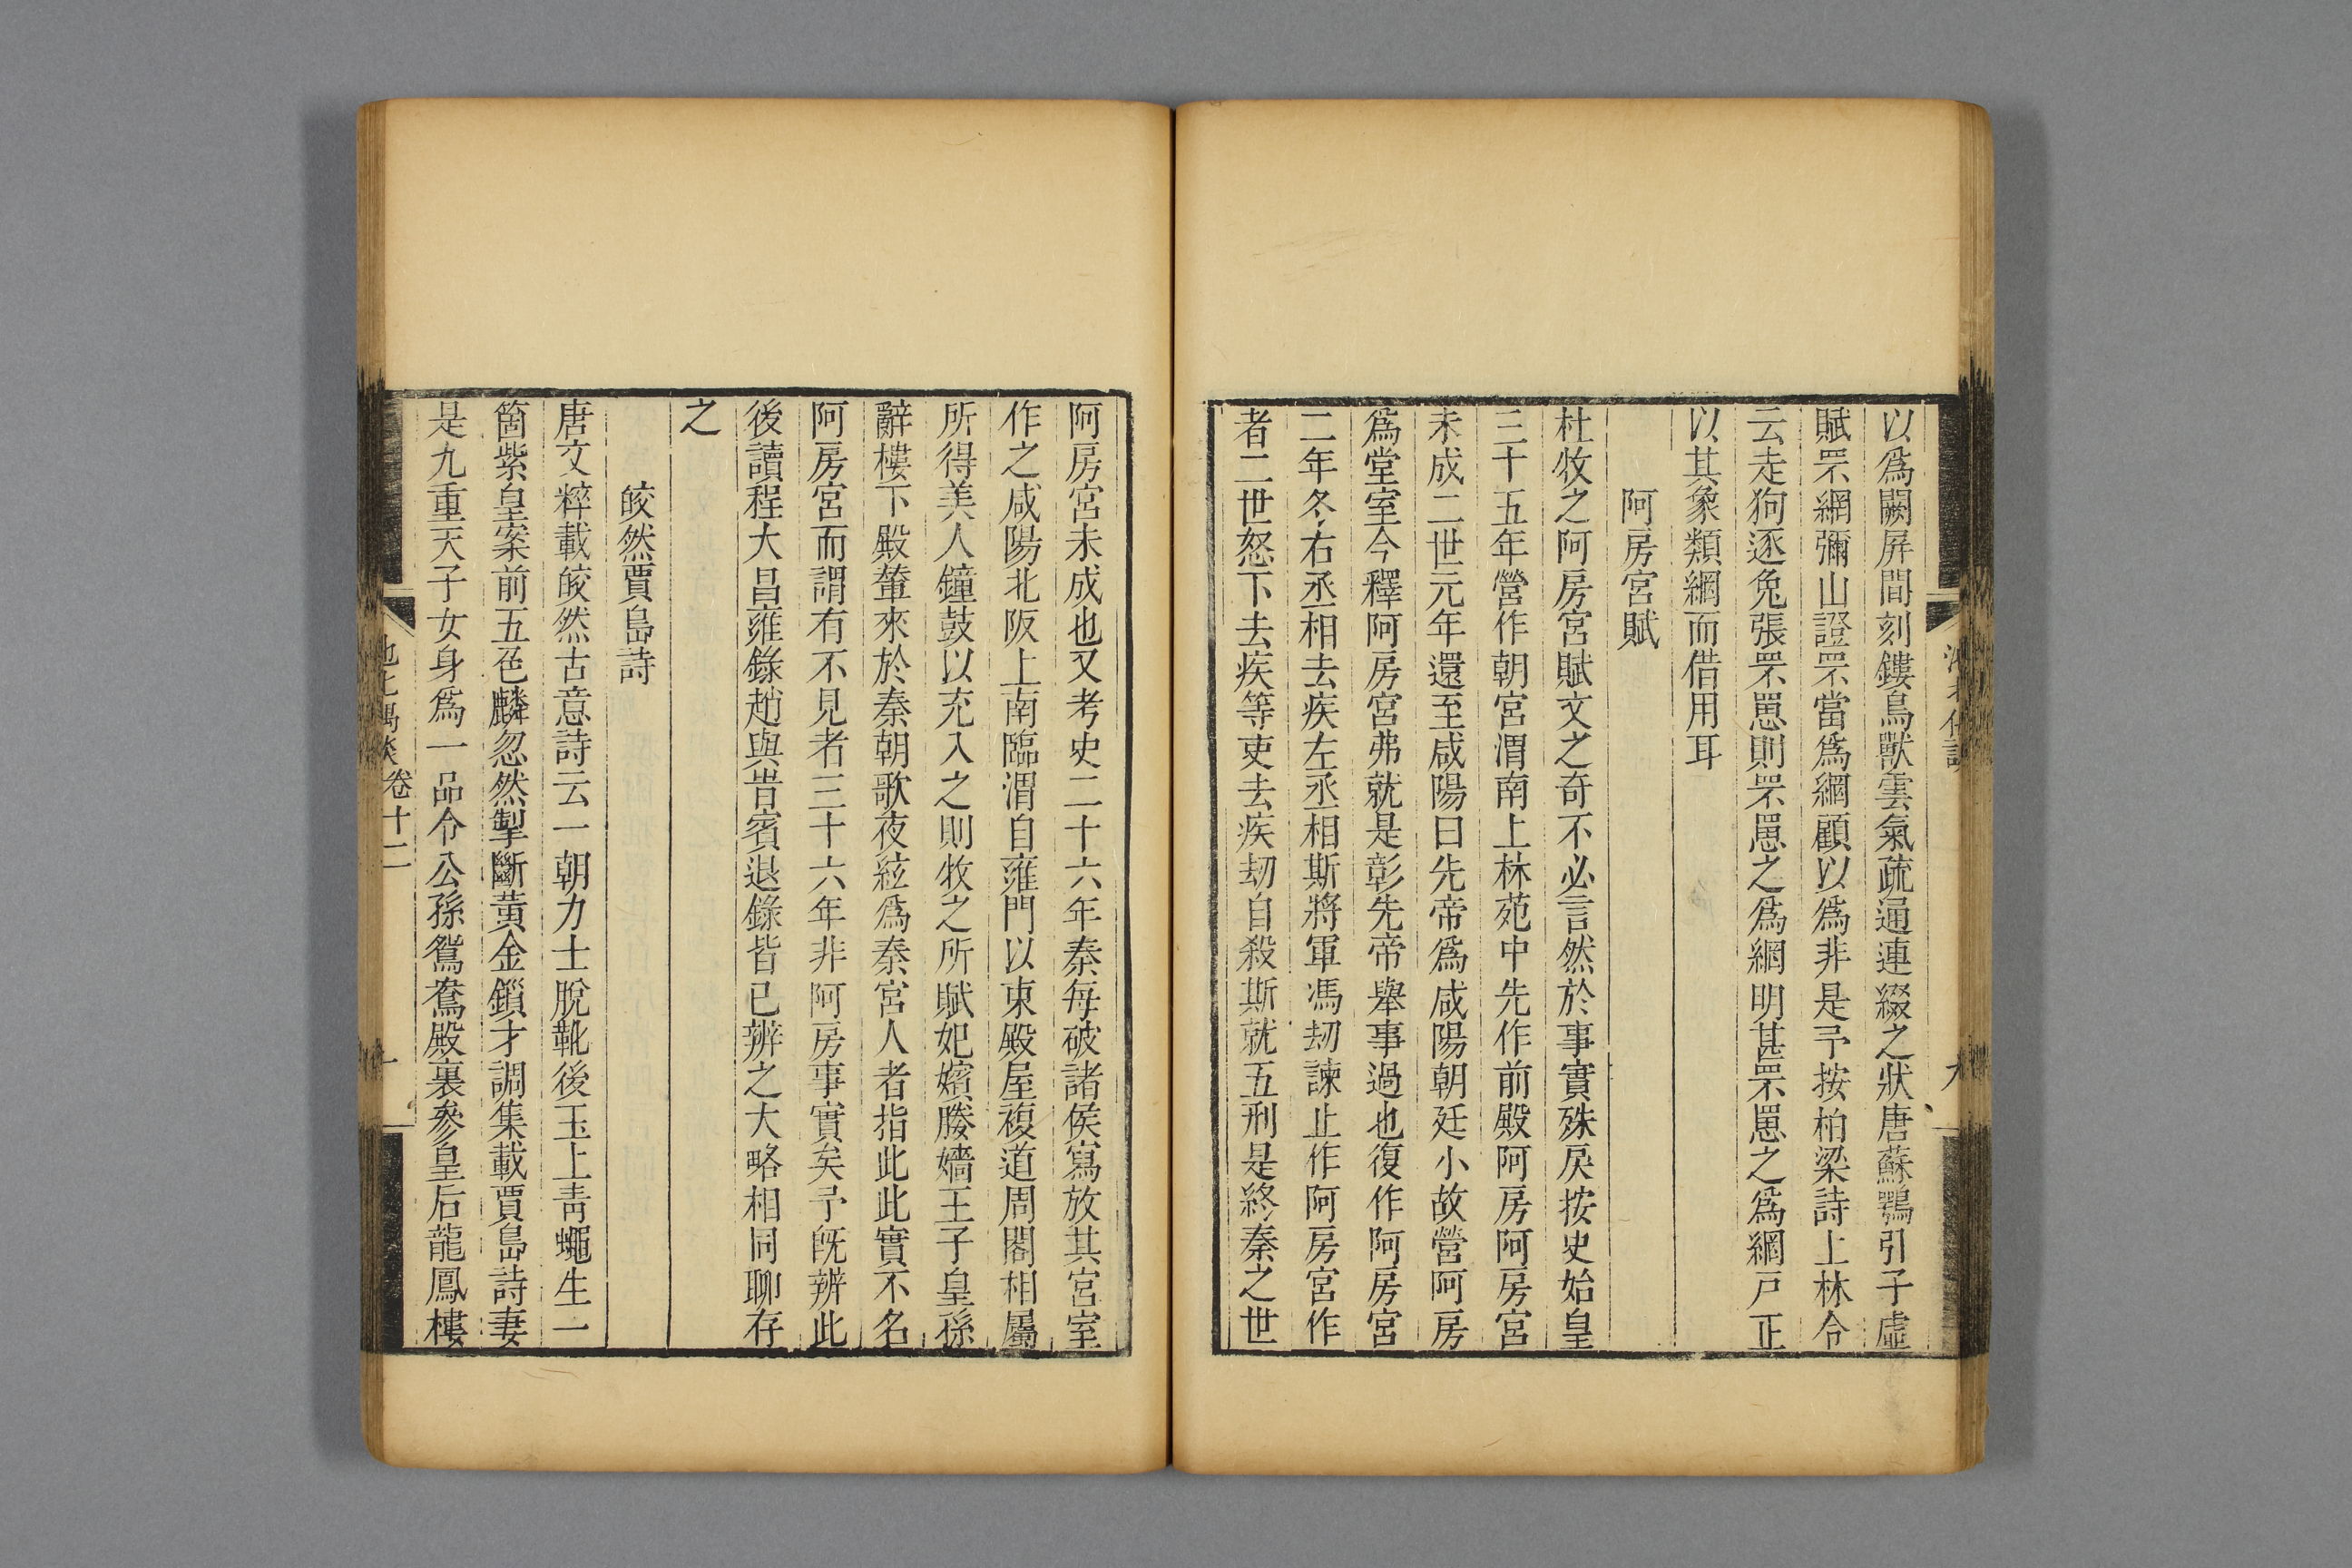 以爲闕屏間刻鏤鳥獸雲氣疏通連綴之狀唐蘇鶚引子虛
賦罘網彌山證罘當爲網顧以爲非是予按柏梁詩上林令
云走狗逐兔張罘罳則罘罳之爲網明甚罘罳之爲網戸正
以其象類網而借用耳
阿房宮賦
杜牧之阿房宮賦文之奇不必言然於事實殊戾按史始皇
三十五年營作朝宮渭南上林苑中先作前殿阿房阿房宮
未成二世元年還至咸陽曰先帝爲咸陽朝廷小故營阿房
爲堂室今釋阿房宮弗就是彰先帝舉事過也復作阿房宮
二年冬右丞相去疾左丞相斯將軍馮刼諫止作阿房宮作
者二世怒下去疾等吏去疾刼自殺斯就五刑是終秦之世
阿房宮未成也又考史二十六年秦每破諸侯寫放其宮室
作之咸陽北阪上南臨渭自雍門以東殿屋複道周閣相屬
所得美人鐘鼓以充入之則牧之所賦妃嬪媵嬙王子皇孫
辭樓下殿輦來於秦朝歌夜絃爲秦宮人者指此此實不名
阿房宮而謂有不見者三十六年非阿房事實矣予旣辨此
後讀程大昌雍錄趙與旹賓退錄皆已辨之大略相同聊存
之
皎然賈島詩
唐文粹載皎然古意詩云一朝力士脫靴後玉上青蠅生一
箇紫皇案前五色麟忽然掣斷黃金鎖才調集載賈島詩妻
是九重天子女身爲一品令公孫鴛鴦殿裏參皇后龍鳳樓
卷十二